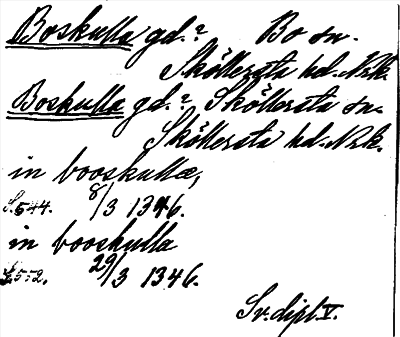 Boskulla gd.? Bo sn.
Sköllersta hd. Nrk.
Boskulla gd.? Sköllersta sn.
Sköllersta hd. Nrk.
in booskulla,
S. 544. 8/3 1346.
in booskulla
S. 552. 29/3 1346.
Sv. dipl. V.